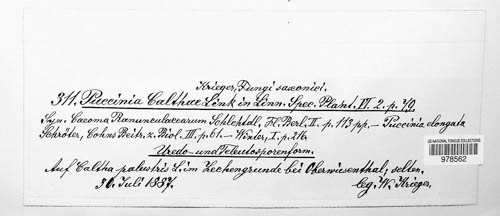 Krieger, Fungi saxonici.
311. Puccinia Calthae Link in Linn. Spec. Plant. VI. 2. p. 79.
Syn. Caeoma Ranunculacearum Schlchtdl. Fl. Berl. II. p. 113 pp. – Puccinia elongata
Schröter, Cohns Beitr. z. Biol. III. p. 61. – Winter, I. p. 216.
Uredo- und Teleutosporenform.
Auf Caltha palustris L. im Zechengrunde bei Oberwiesenthal, selten.
30. Juli 1887. leg. W. Krieger.
US NATIONAL FUNGUS COLLECTIONS
978562